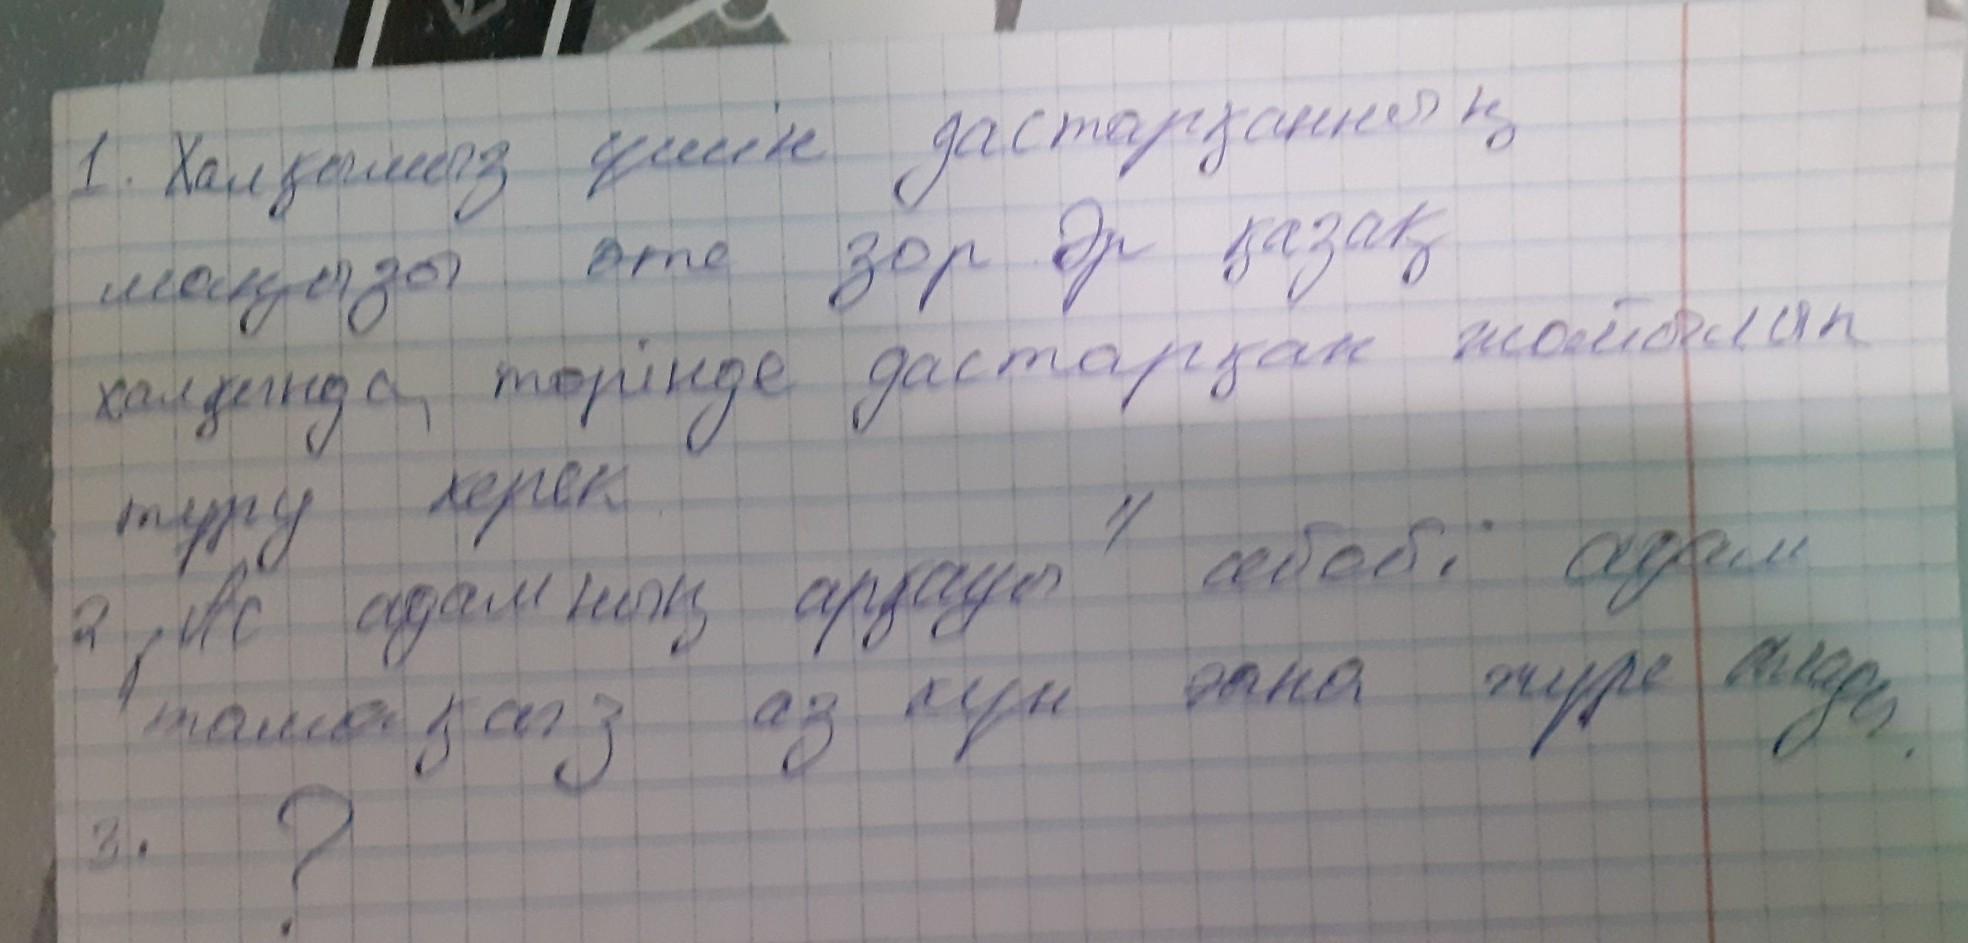 1. Халқымыз үшін дастарқанның
маңызы өте зор Әр қазақ
халқында, төрінде дастарқан жайылып
тұру керек
2, "Ас адамның арқауы" себебі адам
тамақсыз аз күн ғана жүре алады.
3. ?